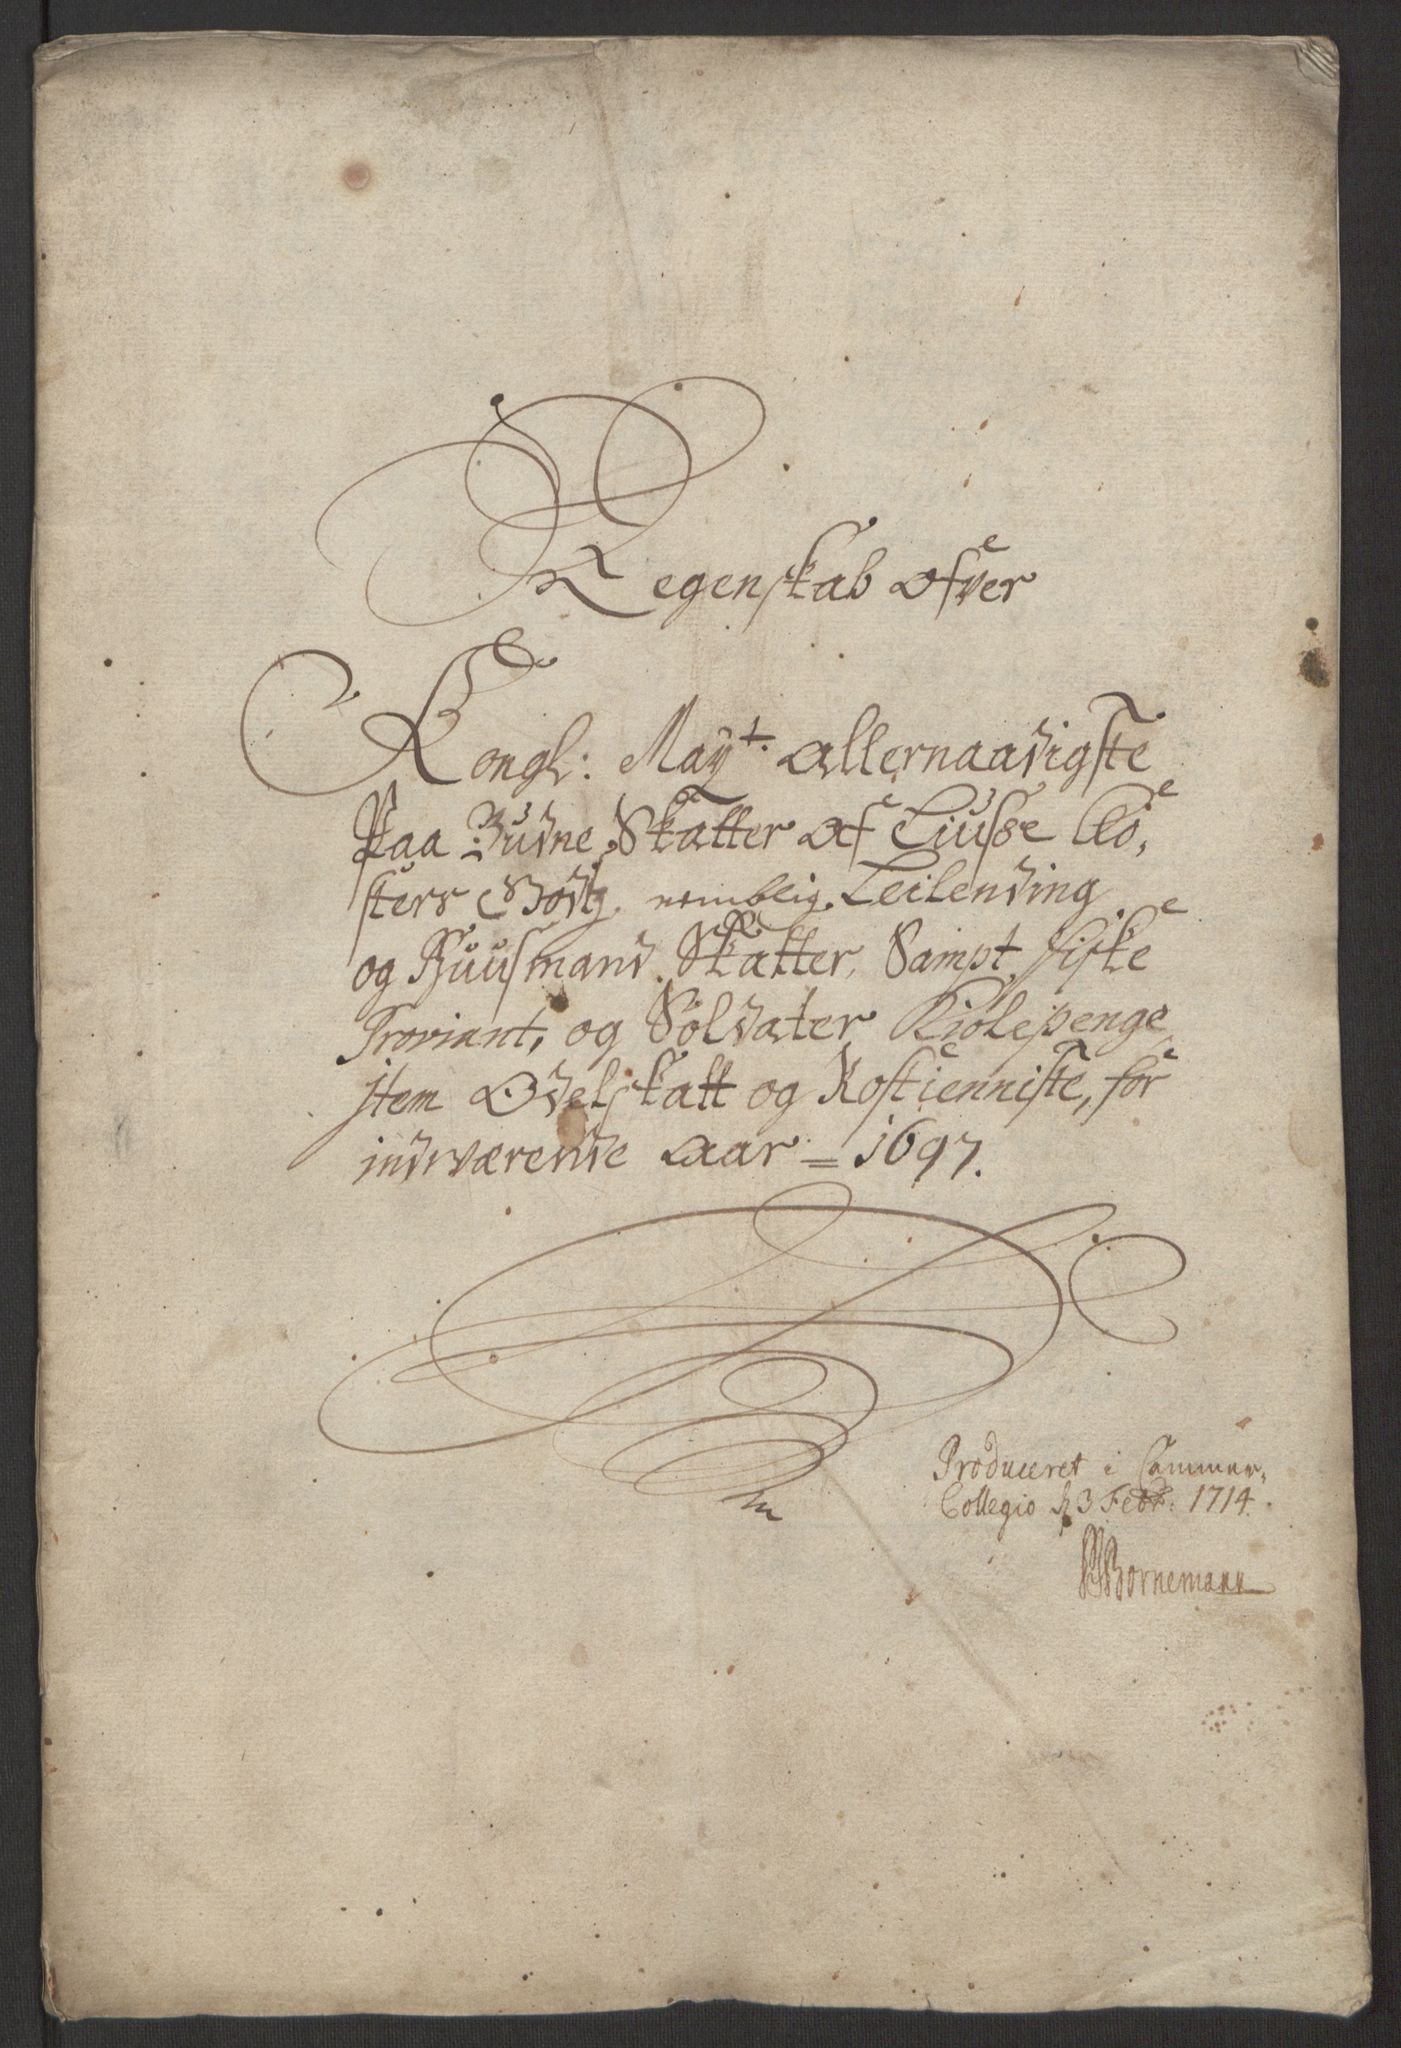 Regenskab ofver
Kongl: Mayt. allernaadigste
Paa Budne Skatter af Liusse Clo,
sters Godtz nemblig Leilending
og Huusmands Skatter, Sampt fiske
Proviant, og Soldater Kiolepenge,
item Odelskatt og Rostienniste, for
indværende Aar = 1697.
Produceret i Cammer,
Collegio d 3 Febr: 1714.
Bornemann